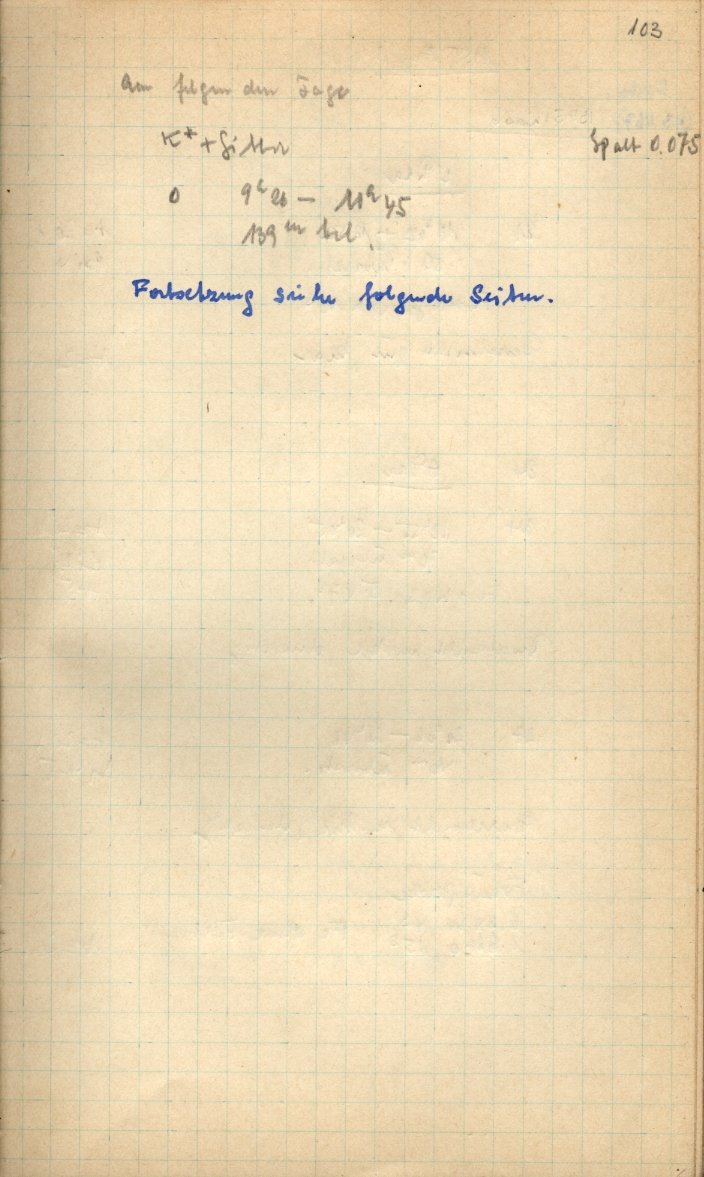 103
Am folgenden Tage
K* + Gitter Spalt 0.075
0 9h 26 — 11h 45
139 m bel.
Fortsetzung siehe folgende Seiten.